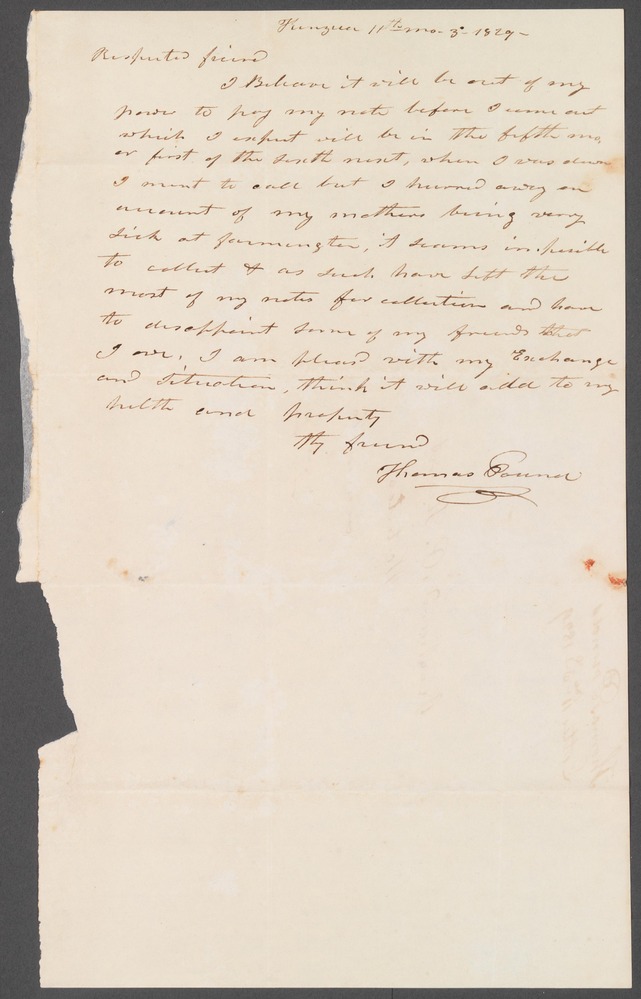 Kinzua 11th mo. 3d 1829-
Respected friend
I Beleave it will be out of my
power to pay my note before I come out
which I expect will be in the fifth mo,
or first of the sixth next, when I was down
I ment to call but I hurred away on
account of my mothers being very
sick at farmington, it seams imposible
to collect & as such have left the
most of my notes for collection and have
to disappoint some of my friends that
I owe, I am pleasd with my Exchange
and situation, think it will add to my
helth and property
thy friend
Thomas Pound